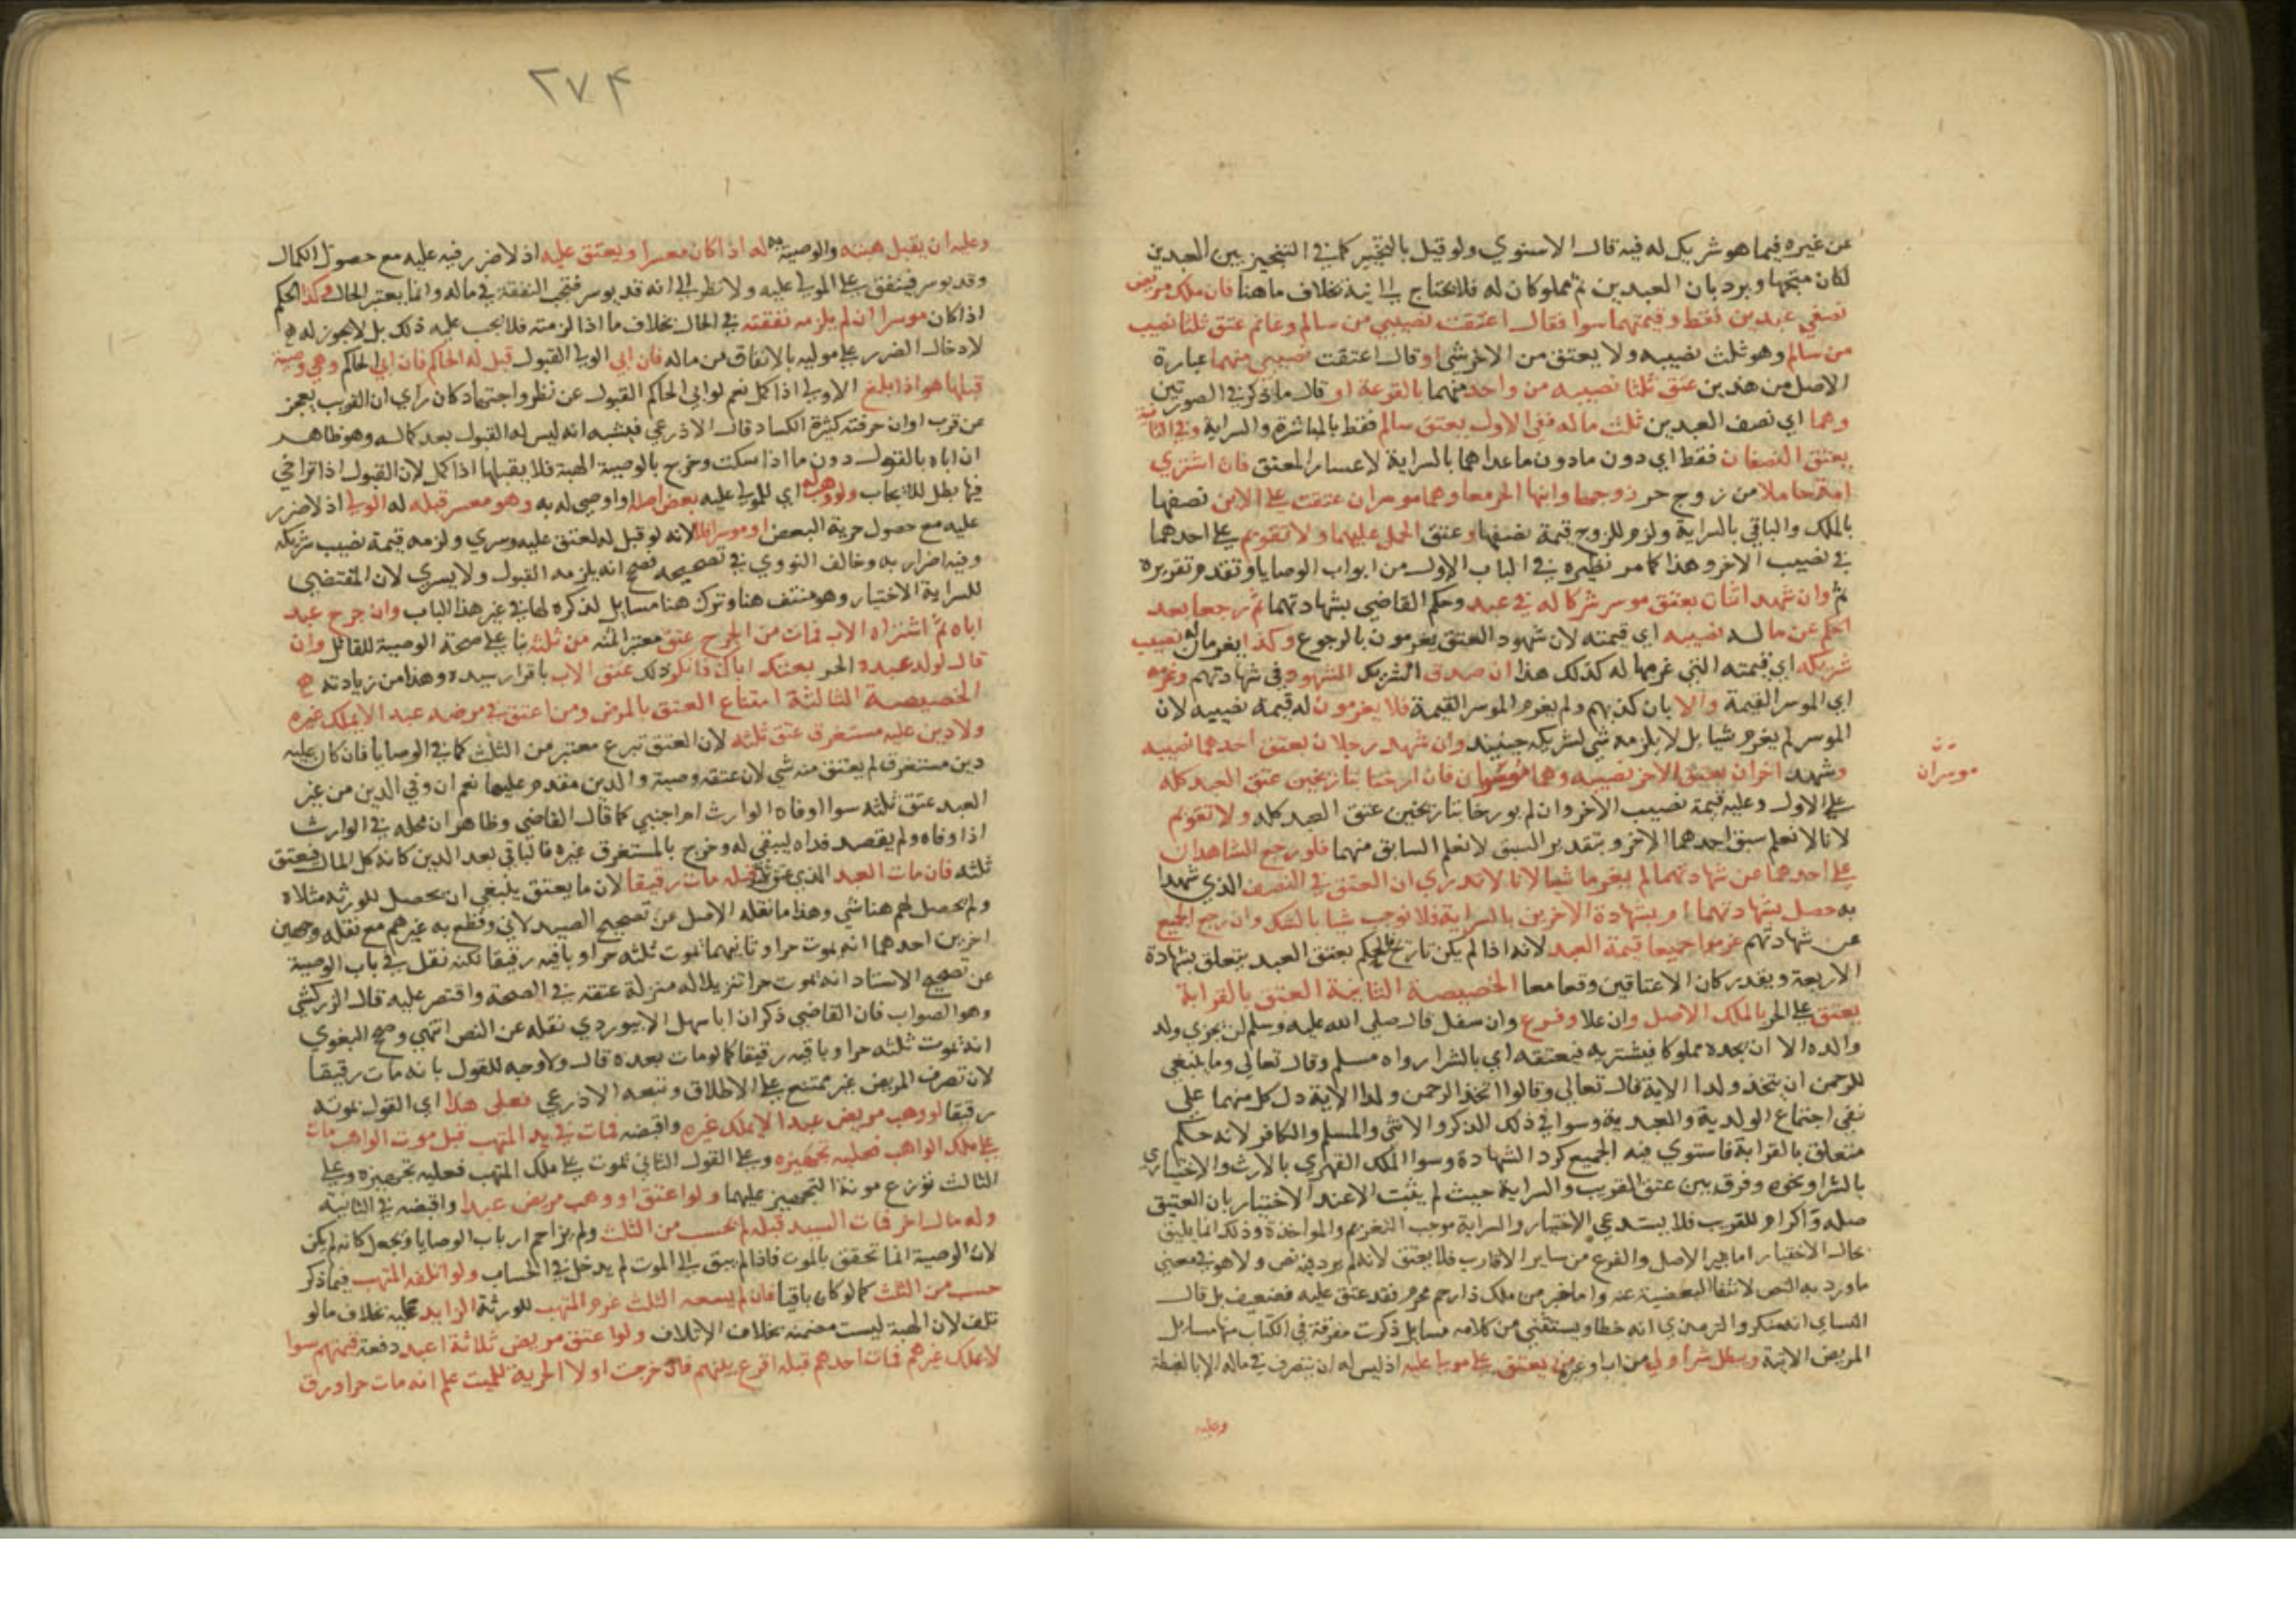 عن غيره فيما هو شريك له فيه قال الاسنوي ولو قيل بالتخيير كما في التنجيز بين العبدين
لكان متجها ويرد بان العبدين ثم مملوكان له فلا يحتاج الي نية بخلاف ما هنا فان ملك مريض
نصفي عبدين فقط وقيمتهما سوا فقال اعتقت نصيبي من سالم وغانم عتق ثلثا نصيبه
من سالم وهو ثلث نصيبه ولا يعتق من الاخر شي او قال اعتقت نصيبي منهما عبارة
الاصل من هذين عتق ثلثا نصيبه من واحد منهما بالقرعة او قال ما ذكر في الصورتين
وهما اي نصف العبدين ثلث ماله ففي الاولي يعتق سالم فقط بالمباشرة والسراية وفي الثانية
يعتق النصفان فقط اي دون ما عداهما بالسراية لاعسار المعتق فان اشتري
امة حاملا من زوج حر زوجها وابنها الحر معا وهما موسران عتقت علي الابن نصفها
بالملك والباقي بالسراية ولزم للزوج قيمة نصفها وعتق الحمل عليهما ولا تقويم علي احدهما
في نصيب الاخر وهذا كما مر نظيره في الباب الاول من ابواب الوصايا وتقدم تقريره
ثم وان شهد اثنان بعتق موسر شركا له في عبد وحكم القاضي بشهادتهما ثم رجعا بعد
الحكم غرما له نصيبه اي قيمته لان شهود العتق يغرمون بالرجوع وكذا يغرمان له نصيب
شريكه اي قيمته التي غرمها له كذلك هذا ان صدق الشريك الشهود في شهادتهم وغرمه
اي الموسر القيمة والا بان كذبهم ولم يغرم الموسر القيمة فلا يغرمون له قيمة نصيبه لان
الموسر لم يغرم شيا بل لا يلزمه شي لشريكه حينيذ وان شهد رجلان بعتق احدهما نصيبه
وشهد اخران بعتق الاخر نصيبه وهما موسران فان ارختا بتاريخين عتق العبد كله
موسران
علي الاول وعليه قيمة نصيب الاخر وان لم يورخا بتاريخين عتق العبد كله ولا تقويم
لانا لا نعلم سبق احدهما الاخر وبتقدير السبق لا نعلم السابق منهما فلو رجع الشاهدان
علي احدهما عن شهادتهما لم يغرما شيا لانا لا ندري ان العتق في النصف الذي شهدا
به حصل بشهادتهما او بشهادة الاخرين بالسراية فلا نوجب شيا بالشك وان رجع الجميع
عن شهادتهم غرموا جميعا قيمة العبد لانه اذا لم يكن تاريخ فالحكم بعتق العبد يتعلق بشهادة
الاربعة ويقدر كان الاعتاقين وقعا معا الخصيصة الثانية العتق بالقرابة
يعتق علي الحر بالملك الاصل وان علا وفروع وان سفل قال صلي الله عليه وسلم لن يجزي ولد
والده الا ان يجده مملوكا فيشتريه فيعتقه اي بالشرا رواه مسلم وقال تعالي وما ينبغي
للرحمن ان يتخذ ولدا الاية قال تعالي وقالوا اتخذ الرحمن ولدا الاية دل كل منهما علي
نفي اجتماع الولدية والعبدية وسوا في ذلك الذكر والانثي والمسلم والكافر لانه حكم
متعلق بالقرابة فاستوي فيه الجميع كرد الشهادة وسوا الملك القهري بالارث والاختياري
بالشرا ونحوه وفرق بين عتق القريب والسراية حيث لم يثبت الا عند الاختيار بان العتيق
صلة واكرام للقريب فلا يستدعي الاختيار والسراية موجب التغريم والمواخذة وذلك انما يليق
بحال الاختيار اما غير الاصل والفرع من ساير الاقارب فلا يعتق لانه لم يرد فيه نص ولا هو في معني
ما ورد به النص لانتفا البعضية عنه واما خبر من ملك ذا رحم محرم فقد عتق عليه فضعيف بل قال
النساي انه منكر والترمذي انه خطا ويستثني من كلامه مسايل ذكرت مفرقة في الكتاب منها مسايل
المريض الاتية وبطل شرا ولي من اب او غيره من يعتق علي موليا عليه اذ ليس له ان يتصرف في ماله الا بالغبطة
وعليه
٢٧٤
وعليه ان يقبل هبته والوصية به له اذا كان معسرا ويعتق عليه اذ لا ضرر فيه عليه مع حصول الكمال
وقد يوسر فينفق علي المولي عليه ولا نظر الي انه قد يوسر فتجب النفقة في ماله وانما يعتبر الحال وكذا الحكم
اذا كان موسرا ان لم يلزمه نفقته في الحال بخلاف ما اذا لزمته فلا يجب عليه ذلك بل لا يجوز له
لادخال الضرر علي موليه بالانفاق من ماله فان ابي الولي القبول قبل له الحاكم فان ابي الحاكم وهي وصية
قبلها هو اذا بلغ الاولي اذا كمل نعم لو ابي الحاكم القبول عن نظر واجتهاد كان راي ان القريب يعجز
عن قرب او ان حرفته كثيرة الكساد قال الاذرعي فيشبه انه ليس له القبول بعد كماله وهو ظاهر
ان اباه بالقول دون ما اذا سكت وخرج بالوصية الهبة فلا يقبلها اذا كمل لان القبول اذا تراخي
فيها بطل للايجاب ولو وهب له اي للمولي عليه بعض اصله او اوصي له به وهو معسر قبله له الولي اذ لا ضرر
عليه مع حصول حرية البعض او موسر فلا لانه لو قبل له لعتق عليه وسري ولزمه قيمة نصيب شريكه
وفيه اضرار به وخالف النووي في تصحيحه فصحح انه يلزمه القبول ولا يسري لان المقتضي
للسراية الاختيار وهو منتف هنا وترك هنا مسايل لذكره لها في غير هذا الباب وان جرح عبد
اباه ثم اشتراه الاب فمات من الجرح عتق معتبر الثمنه من ثلثه بنا علي صحة الوصية للقاتل وان
قال لولد عبده الحر بعتك اباك فانكر ذلك عتق الاب باقرار سيده وهذا من زيادته
الخصيصة الثالثة امتناع العتق بالمرض ومن اعتق في مرضه عبدا لا يملك غيره
ولا دين عليه مستغرق عتق ثلثه لان العتق تبرع معتبر من الثلث كما في الوصايا فان كان عليه
دين مستغرق لم يعتق منه شي لان عتقه وصية والدين مقدم عليها نعم ان وفي الدين من غير
العبد عتق ثلثه سوا اوفاه الوارث ام اجنبي كما قال القاضي وظاهر ان محله في الوارث
اذا وفاه ولم يقصد فداه ليبقي له وخرج بالمستغرق غيره فالباقي بعد الدين كانه كل المال فيعتق
ثلثه فان مات العبد الذي عتق ثلثه قبله مات رقيقا لان ما يعتق ينبغي ان يحصل للورثه مثلاه
ولم يحصل لهم هنا شي وهذا ما نقله الاصل عن تصحيح الصيدلاني وقطع به غيرهم مع نقله وجهين
اخرين احدهما انه يموت حرا وثانيهما يموت ثلثه حرا وباقيه رقيقا لكنه نقل في باب الوصية
عن تصحيح الاستاد انه يموت حرا تنزيلا له منزلة عتقه في الصحة واقتصر عليه قال الزركشي
وهو الصواب فان القاضي ذكر ان ابا سهل الابيوردي نقله عن النص انتهي وصحح البغوي
انه يموت ثلثه حرا وباقيه رقيقا كما لو مات بعده قال ولا وجه للقول بانه مات رقيقا
لان تصرف المريض غير ممتنع علي الاطلاق وتبعه الاذرعي فعلي هذا اي القول بموته
رقيقا لو وهب مريض عبدا لا يملك غيره واقبضه فمات في يد المتهب قبل موت الواهب مات
علي ملك الواهب فعليه تجهيزه وعلي القول الثاني يموت علي ملك المتهب فعليه تجهيزه وعلي
الثالث توزع مونة التجهيز عليهما ولو اعتق او وهب مريض عبدا واقبضه في الثانية
وله مال اخر فمات السيد قبله لم يحسب من الثلث ولم يزاحم ارباب الوصايا ويجعل كانه لم يكن
لان الوصية انما تحقق بالموت فاذا لم يبق الي الموت لم يدخل في الحساب ولو اتلفه المتهب فيما ذكر
حسب من الثلث كما لو كان باقيا فان لم يسعه الثلث غرم المتهب للورثة الزايد عليه بخلاف ما لو
تلف لان الهبة ليست مضمنة بخلاف الاتلاف ولو اعتق مريض ثلاثة اعبد دفعة قيمتهم سوا
لا يملك غيرهم فمات احدهم قبله اقرع بينهم فان خرجت اولا الحرية للميت علم انه مات حرا ورق